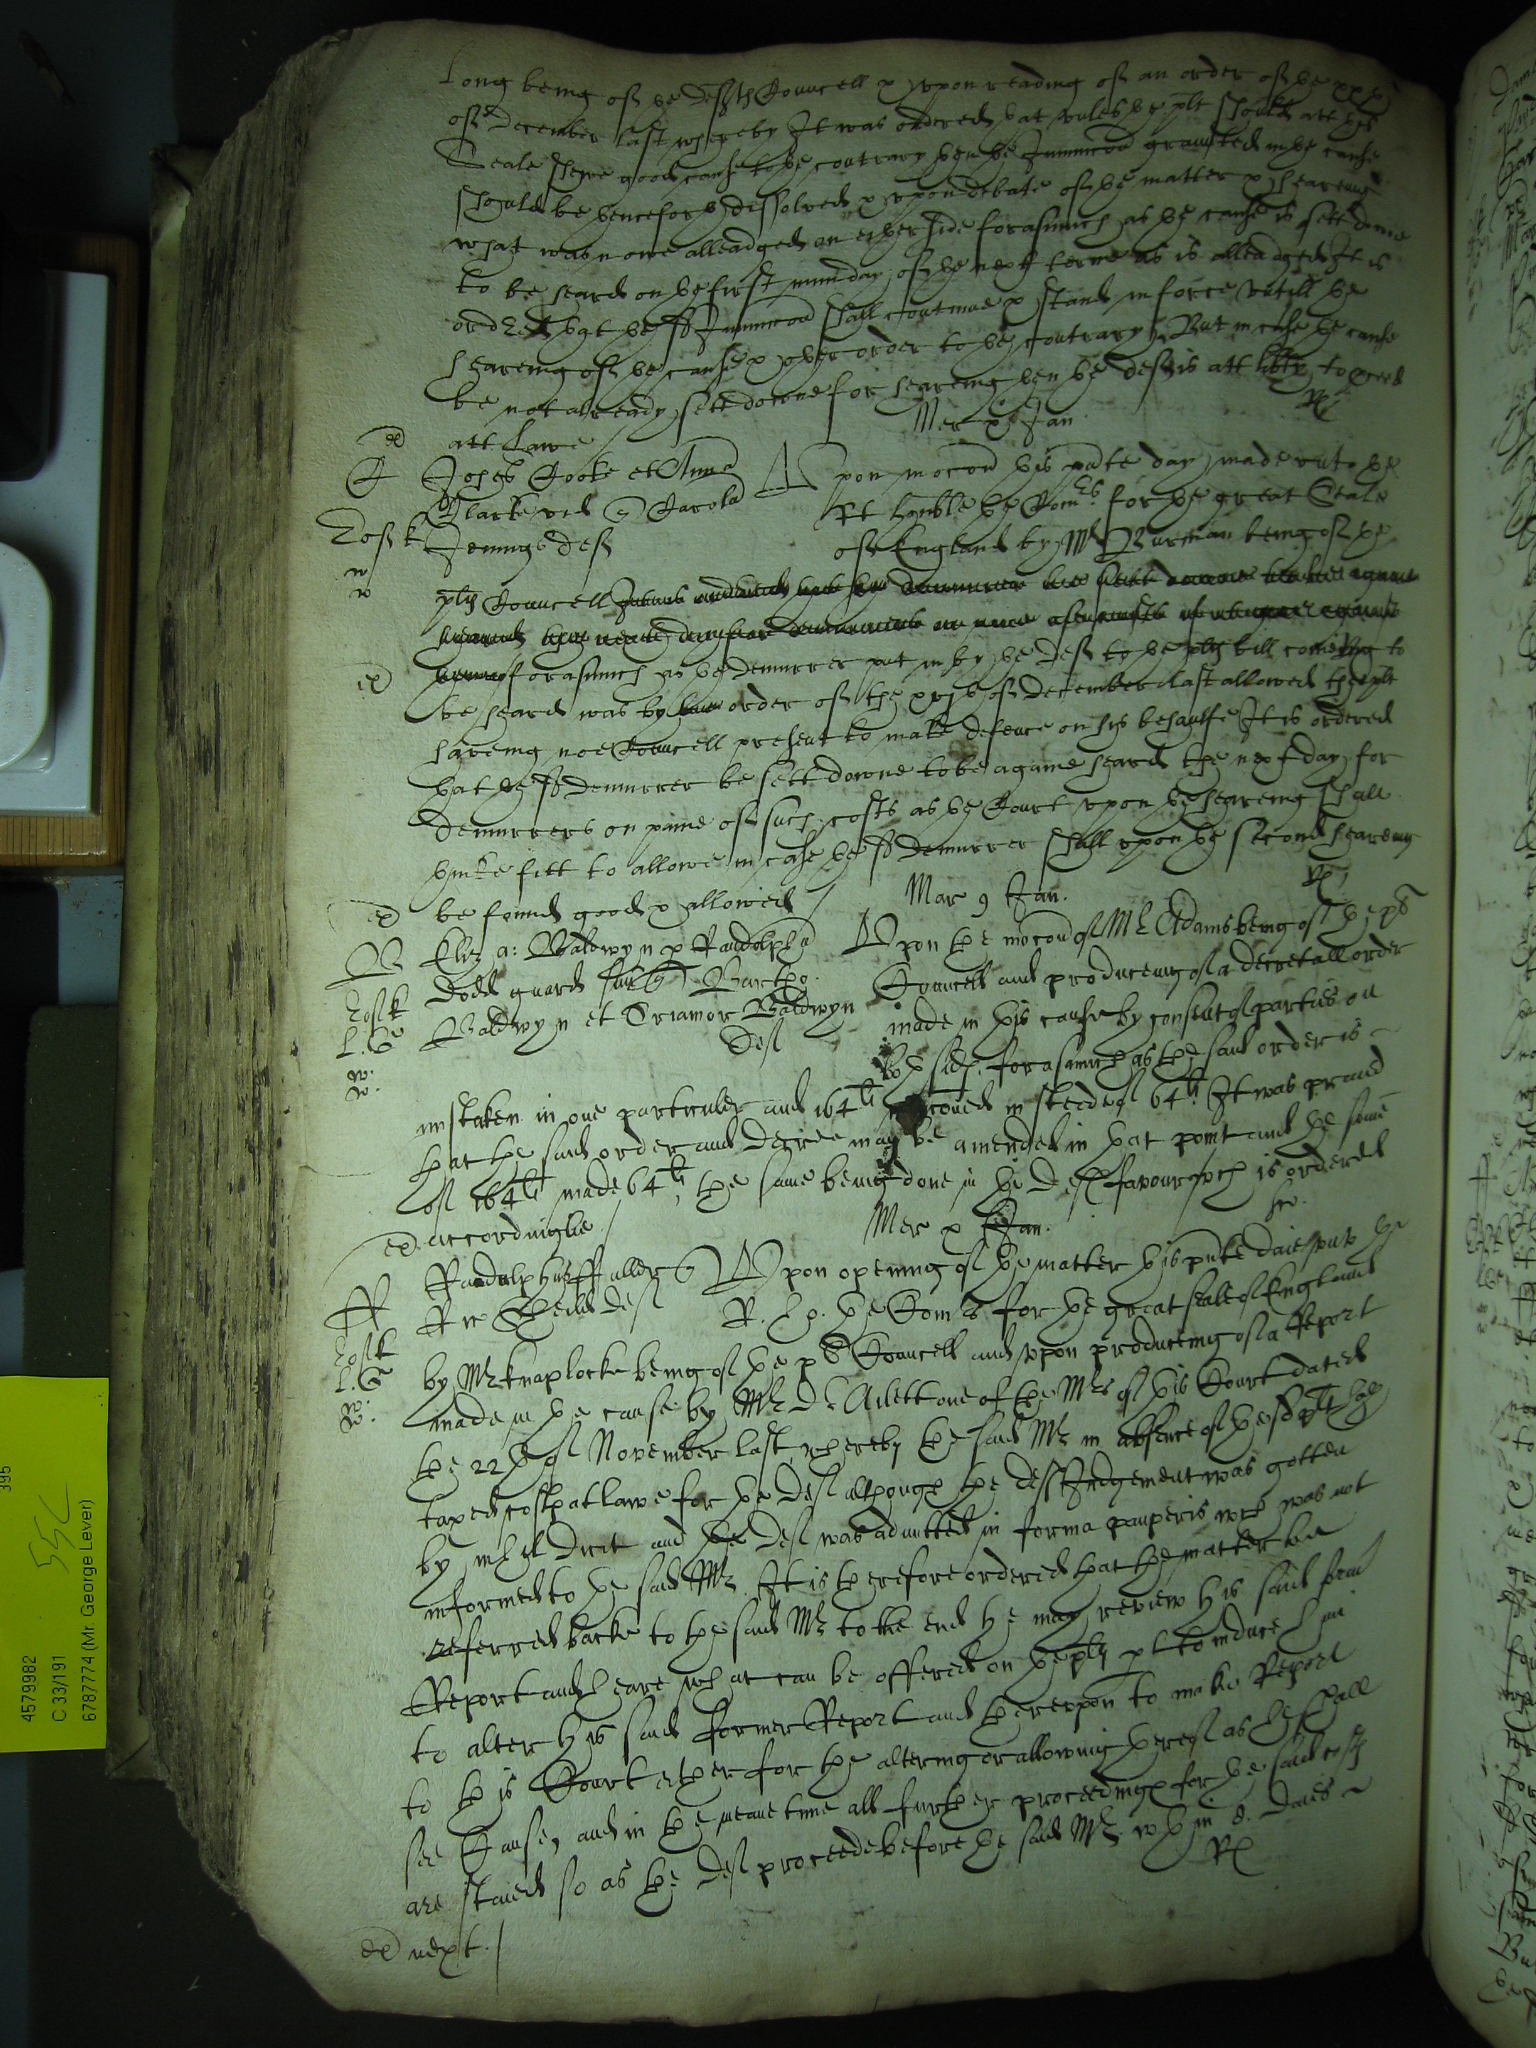 Long being of ye defts Councell & upon reading of an order of ye xxxj
of December last whereby It was ordered yat unles ye plt should att ye
Seale shewe good cause to ye contrary yen ye Iniunccon graunted in ye cause
should be henceforth dissolved & upon debate of ye matter & heareing
what was nowe alleadged on either side forasmuch as ye cause is sett downe
to be heard on ye first munday of ye next terme as is alleadged It is
ordred yat ye sd Iniunccon shall continue & stand in force untill ye
heareing of ye cause & other order to ye contrary But in case ye cause
be not already sett downe for heareing then ye deft is att libty to proceed
att Lawe
Mer x Jan
Joseph Cooke et Anna
Clarke vid Carola
Jenings def
Upon mocon this pnte day made unto ye
Rt hoble ye Comrs for ye great Seale
of England by Mr Burman being of ye
plts Councell
forasmuch as ye demurrer put in by ye deft to ye plts bill comeing to
be heard was by order of the of December last allowed the plt
haveing noe Councell present to make defence on his behaulfe It is ordered
yat ye sd demurrer be sett downe to be againe heard the next day for
demurrers on paine of such costs as ye Court upon ye heareing shall
thinke fitt to allowe in case ye sd demurrer shall upon ye second heareing
be found good & allowed
Mar 9 Jan.
Eliz a: Baldwyn p Randolph
Dodd guard Bartho:
Baldwyn et Triamor Baldwyn
Def
Upon the mocon of Mr Adams being of ye pts
Councell and produceing of a decretall order
made in this cause by consent of parties on
both sides, forasmuch as the said order is
mistaken in one particuler and 164li in steede of 64li It was praied
that the said order and decree may be amended in that point and ye same
of 164li made 64li, the same being done in ye Defts favour wch is ordered
accordinglie
Mer x Jan.
Randulphus Fuller
Def
Upon opening of ye matter this pnte daie unto ye
R. Ho. ye Comrs for ye great seale of England
by Mr Knaplocke being of ye pts Councell and upon produceing of a Report
made in ye cause by Mr Dr Ailett one of the Mrs of this Court dated
the 22th of November last whereby the said Mr in absence of ye sd plt had
taxed costs at lawe for ye Deft although the defts Judgement was gotten
by nihil dicit and ye Deft was admitted in forma pauperis wch was not
informed to ye said Mr. It is therefore ordered that the matter be
referred backe to the said Mr to the end he may review his said
Report and heare what can be offered on ye plts pt to induce him
to alter his said former Report and thereupon to make Report
to this Court either for the altering or allowing thereof as he shall
see Cause, and in the meane time all further proceedings for ye said costs
are staied so as the Deft proceede before ye said Mr wthin 8. Daies
next.
4579982
C 33/191
6787774 (Mr. George Lever)
395